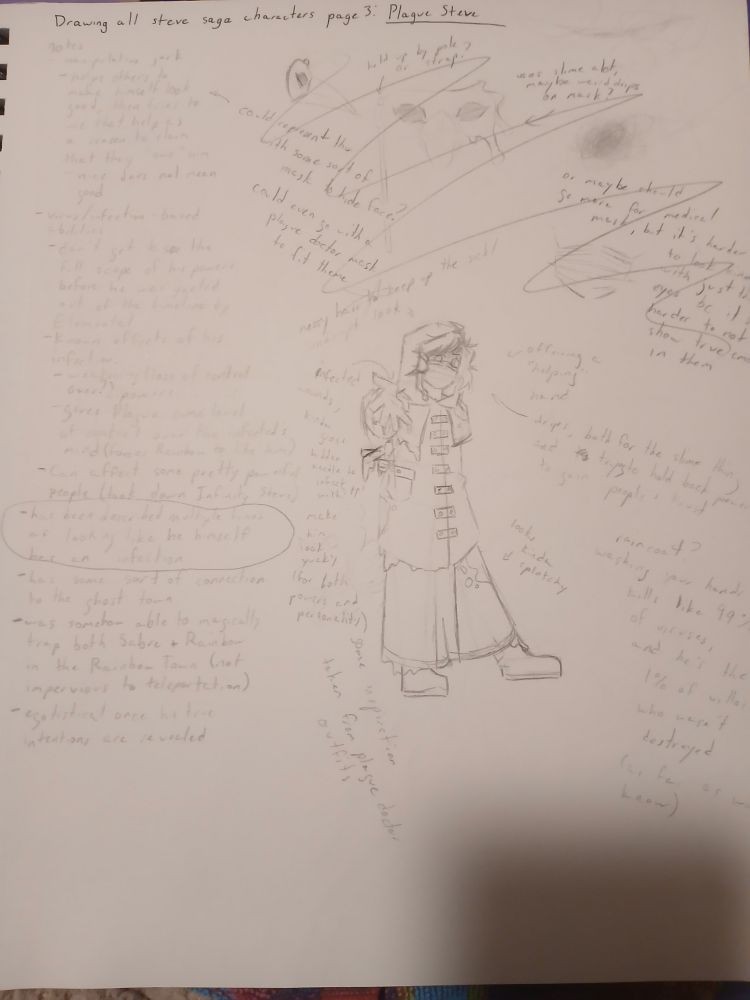 Drawing all steve saga characters page 3: Plague Steve
notes
- manipulation jerk
- helps others to
make himself look
good, then tries to
use that help as
a reason to claim
that they "owe" him
- nice does not mean
good
- virus/infection-based
abilities
- don't get to see the
full scope of his powers
before he was yeeted
out of the timeline by
Elemental
- Known effects of his
infection:
- weakening/loss of control
over?? powers
- gives Plague some level
of control over the infected's
mind (forces Rainbow to like him)
- Can affect some pretty powerful
people (took down Infinity Steve)
- has been described multiple times
as looking like he himself
has an infection
- has some sort of connection
to the ghost town
- was somehow able to magically
trap both Sabre + Rainbow
in the Rainbow Town (not
impervious to teleportation)
- egotistical once his true
intentions are revealed
held up by pole?
or strap?
could represent this
with some sort of
mask to hide face?
could even go with a
plague doctor mask
to fit theme
uses slime abt,
maybe weird drips
on mask?
or maybe should
go more for medical
mask, but it's harder
to look
with just the
eyes bc it's
harder to not
show true
in them
messy hair to keep up
the
look?
infected
hands,
kinda
gross
hidden
needle to
infect ppl
with
make
him
look
yucky
(for both
powers and
personality)
some inspiration
taken from plague doctor
outfits
offering a
"helping"
hand
drips, both for the slime thing
and
hold back
to gain people's trust
looks
kinda
splotchy
raincoat?
washing your hands
kills like 99%
of viruses,
and he's the
1% of villains
who wasn't
destroyed
(as far as we
know)